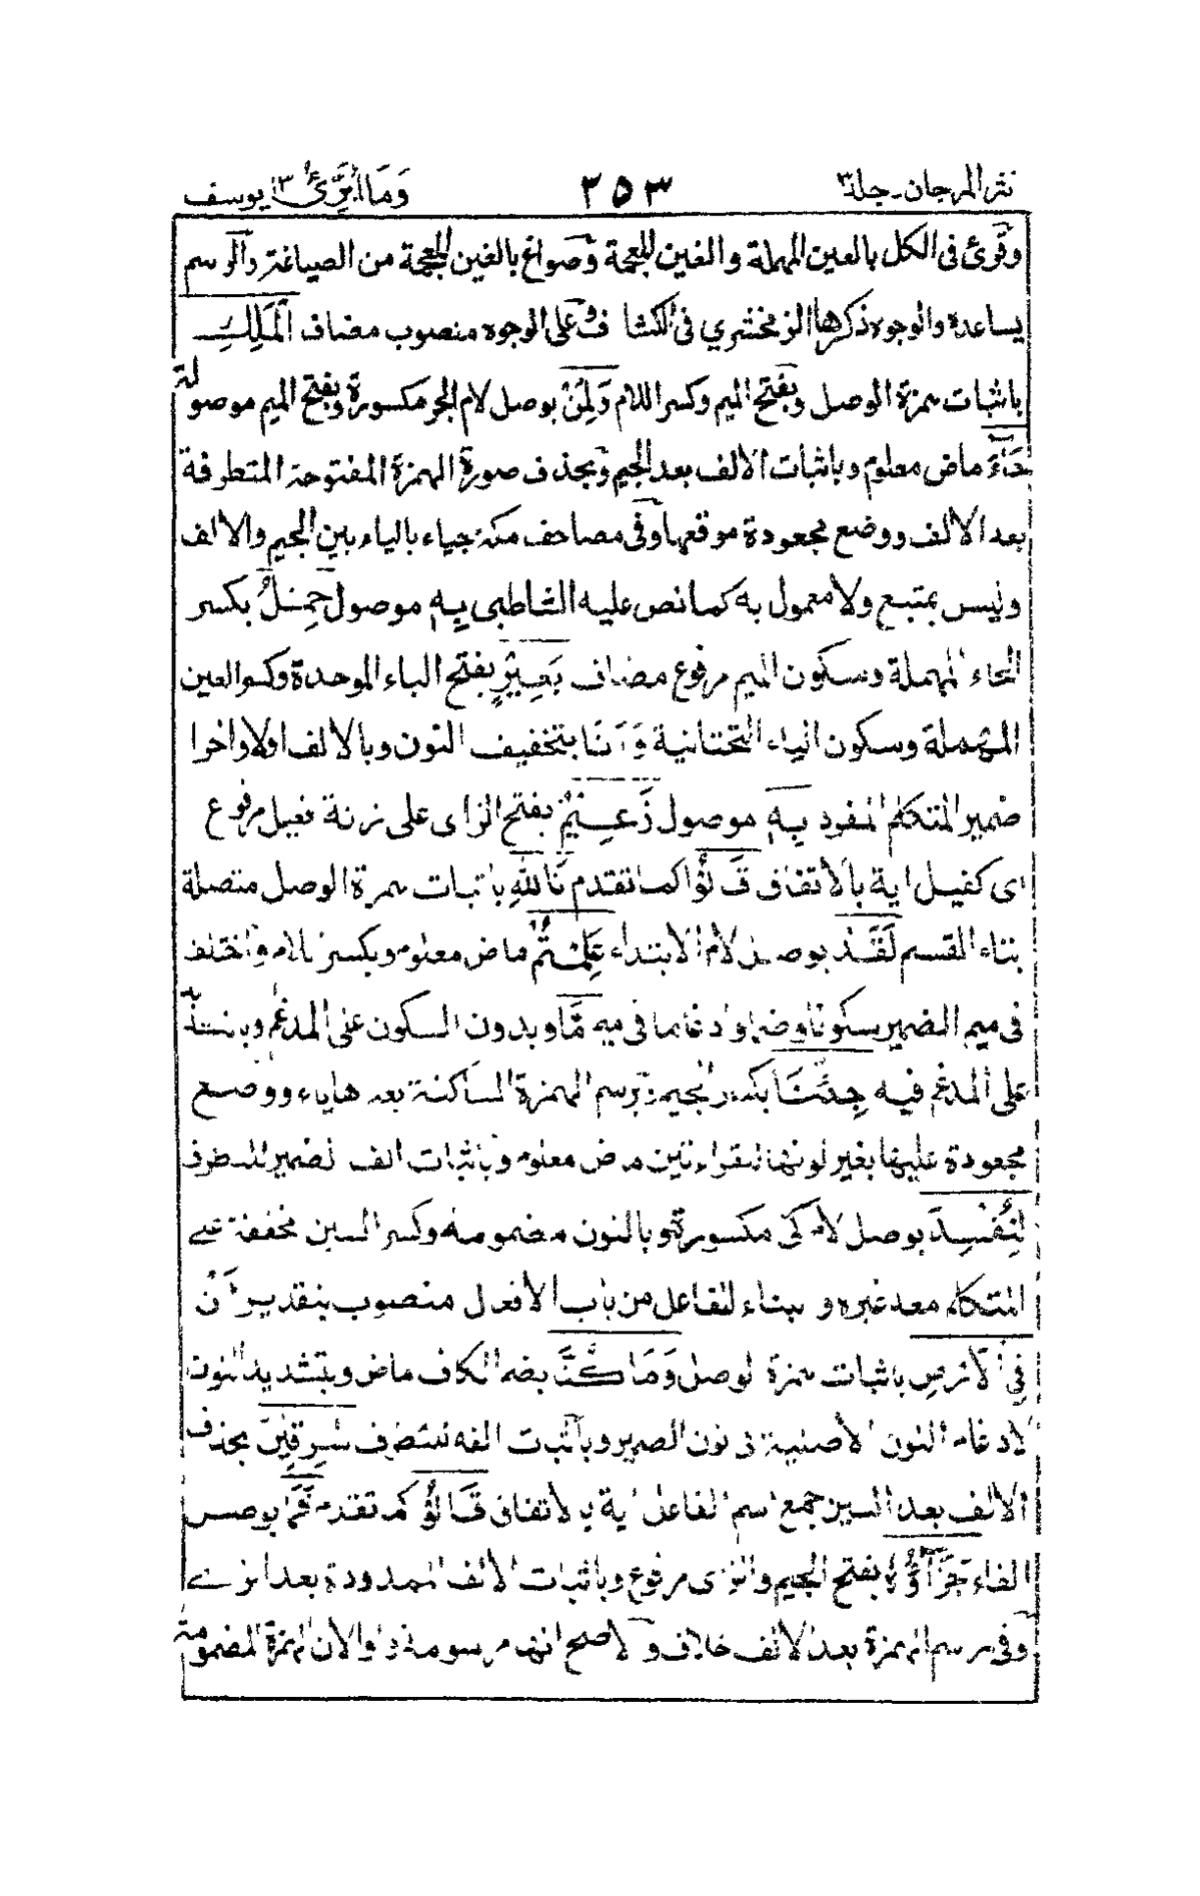 نثر المرجان۔جلد۳ ۳۵۳ وَمَا اُبَرِّئُ ۱۳ یوسف
وقرئ فی الکل بالعین المهملة والغین المعجمة وصواغ بالغین المعجمة من الصیاغة والرسم
یساعده والوجوه ذکرها الزمخشري فی الکشاف وعلی الوجوه منصوب مضاف الْمَلِكِ
باثبات همزة الوصل وبفتح المیم وکسر اللام وَلِمَنْ بوصل لام الجر مکسورة وبفتح المیم موصولة
جَآءَ ماض معلوم وباثبات الالف بعد الجیم وبحذف صورة الهمزة المفتوحة المتطرفة
بعد الالف ووضع مجعودة موقعها وفی مصاحف مکة جیاء بالیاء بین الجیم والالف
ولیس بمتبع ولا معمول به کما نص علیه الشاطبی بِهٖ موصول حِمْلُ بکسر
الحاء المهملة وسکون المیم مرفوع مضاف بَعِيْرٍ بفتح الباء الموحدة وکسر العین
المهملة وسکون الیاء التحتانیة وَاَنَا بتخفیف النون وبالالف اولا واخرا
ضمیر المتکلم المفرد بِهٖ موصول زَعِيْمٌ بفتح الزای علی زنة فعیل مرفوع
ای کفیل اٰیة بالاتفاق قَالُوْا کما تقدم تَاللهِ باثبات همزة الوصل متصلة
بتاء القسم لَقَدْ بوصل لام الابتداء عَلِمْتُمْ ماض معلوم وبکسر اللام واختلف
فی میم الضمیر سکونا وضما وادغاما فی میم مَّا وبدون السکون علی المدغم وبالتشدید
علی المدغم فیه جِئْنَا بکسر الجیم وبرسم الهمزة الساکنة بعدها یاء ووضع
مجعودة علیها بغیر لونها للقراءتین ماض معلوم وباثبات الف الضمیر للتطرف
لِنُفْسِدَ بوصل لام کی مکسورة وبالنون مضمومة وکسر السین مخففة علے
المتکلم معه غیره وببناء الفاعل من باب الافعال منصوب بتقدیر اَنْ
فِي الْاَرْضِ باثبات همزة الوصل وَمَا كُنَّا بضم الکاف ماض وبتشدید النون
لادغام النون الاصلیة فی نون الضمیر وباثبات الفه للتطرف سٰرِقِيْنَ بحذف
الالف بعد السین جمع اسم الفاعل اٰیة بالاتفاق قَالُوْا کما تقدم فَمَا بوصل
الفاء جَزَآؤُهٗ بفتح الجیم والزای مرفوع وباثبات الالف الممدودة بعد الزاے
وفی رسم الهمزة بعد الالف خلاف والاصح انها مرسومة واوا لان الهمزة المضمومة